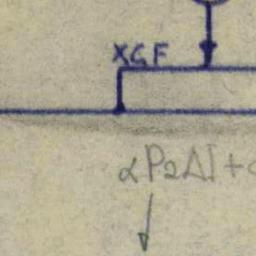 XGF
αP₂ΔI+